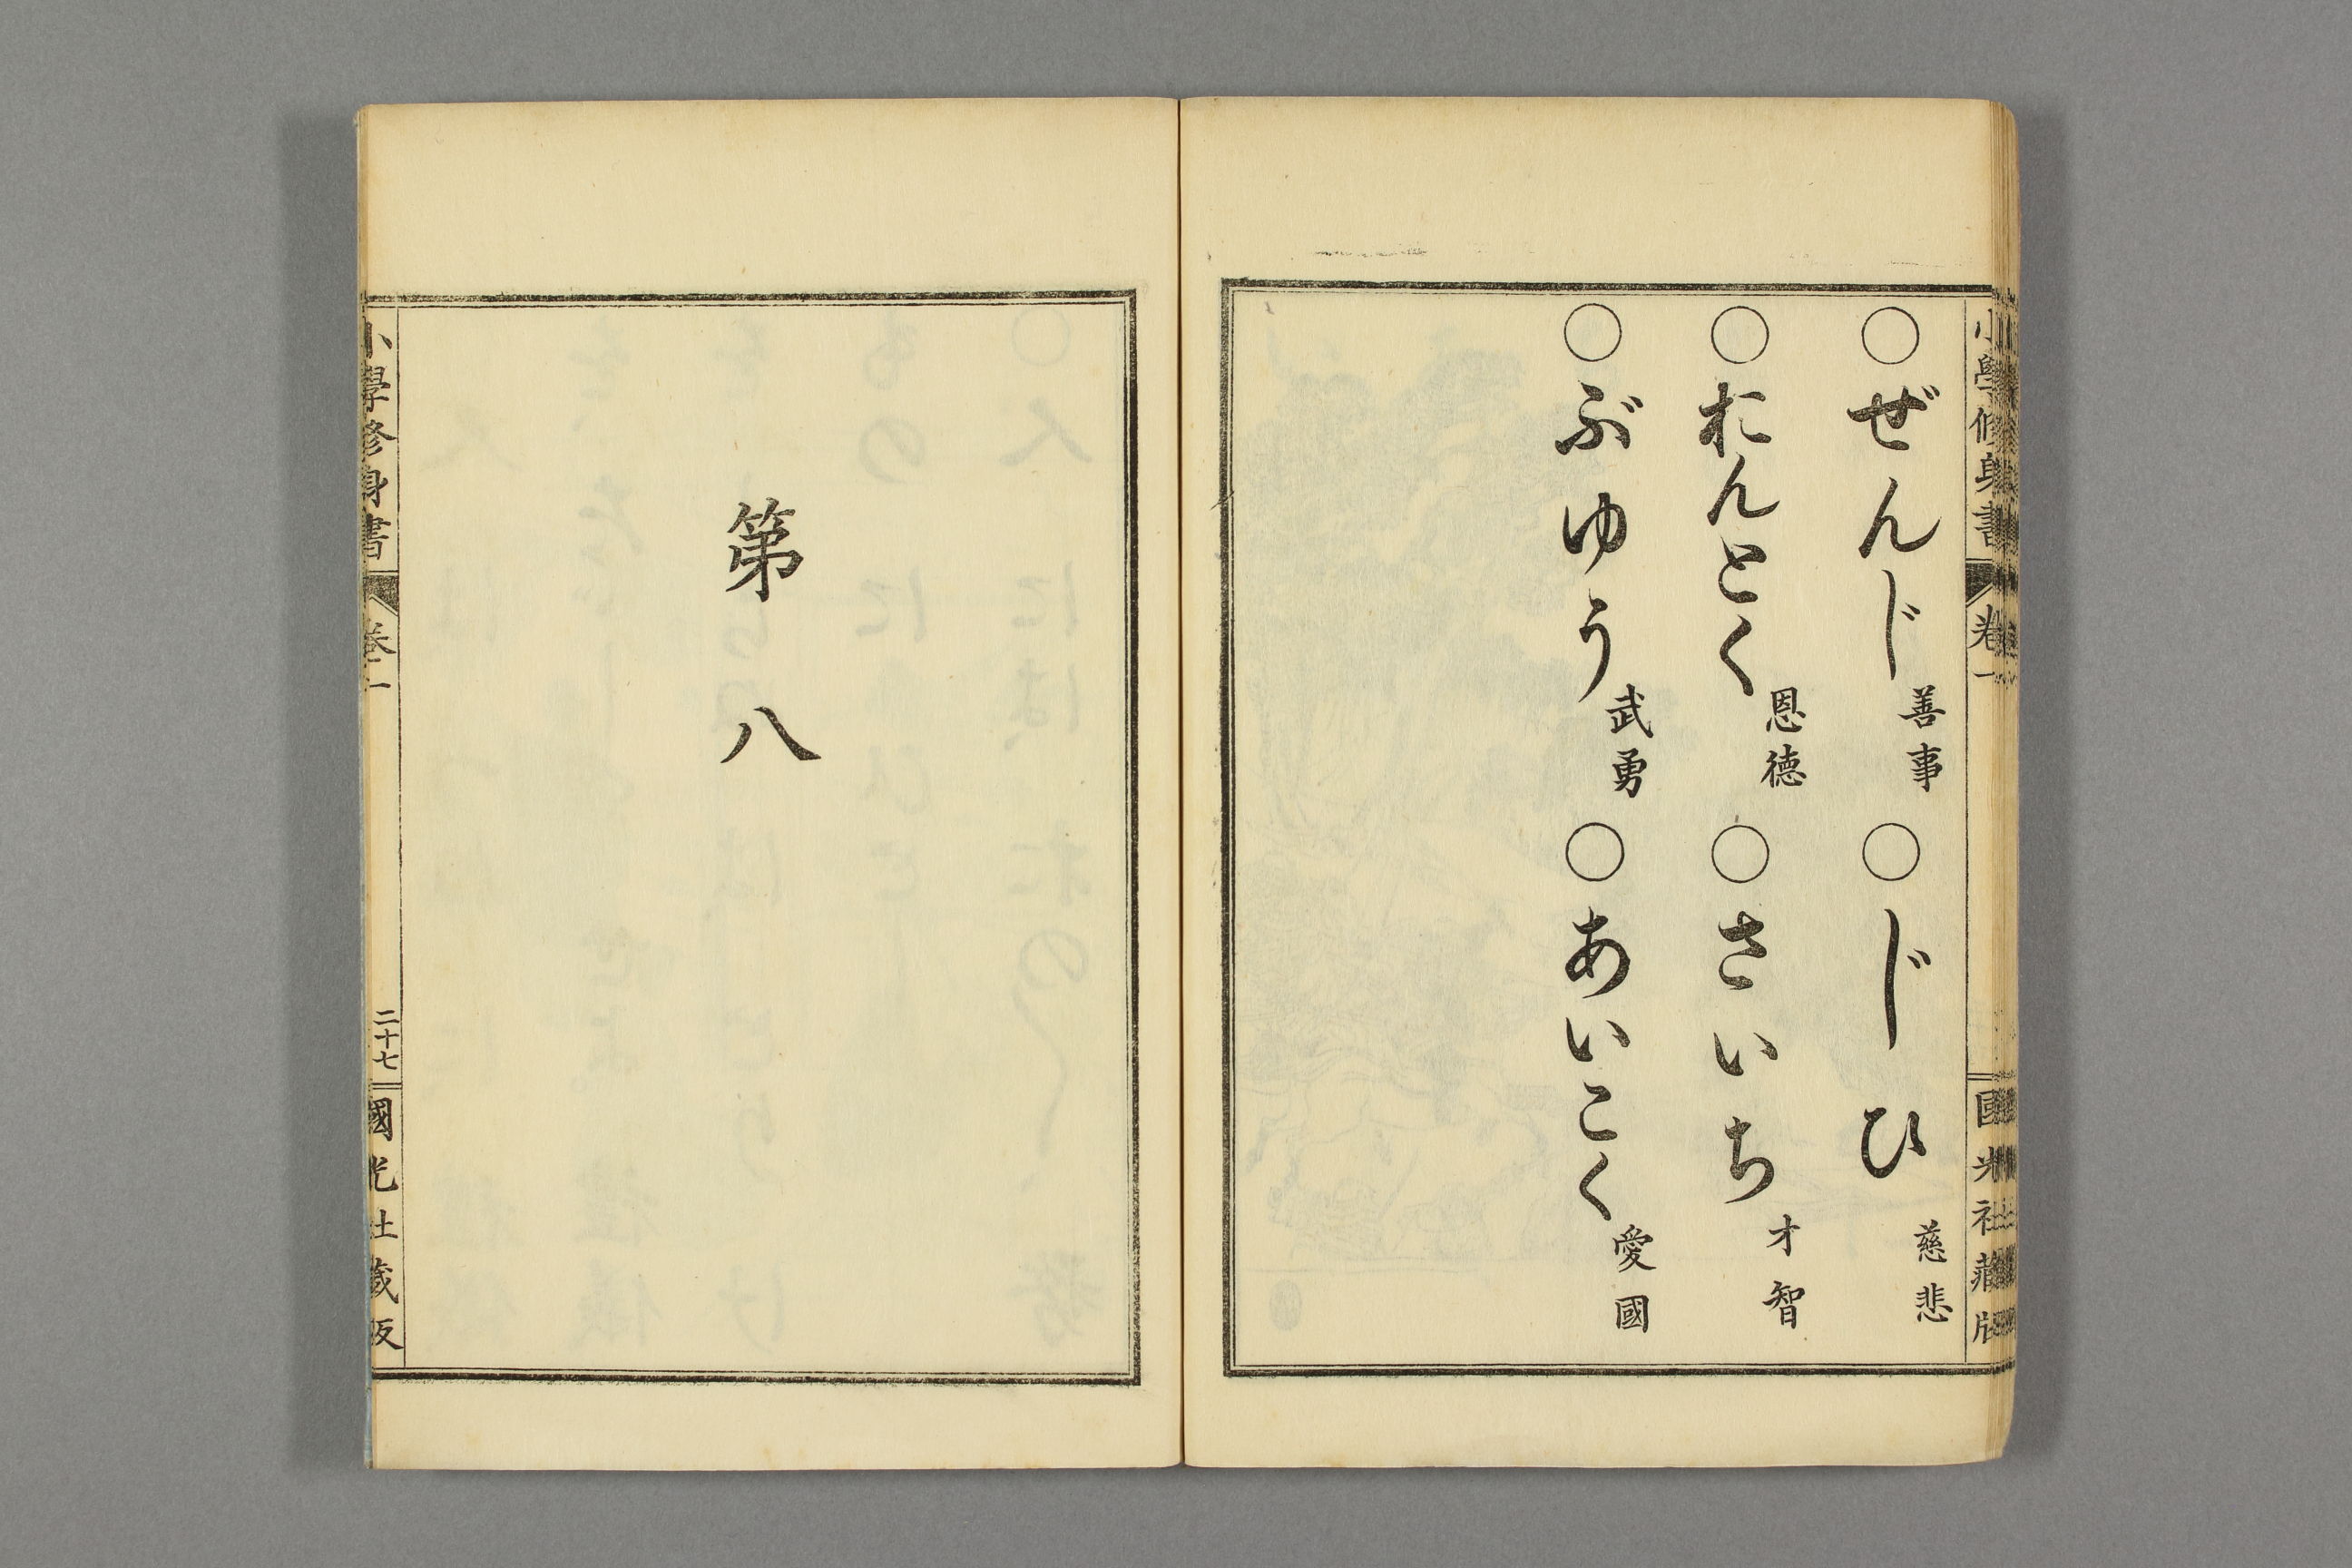 小學修身書 卷一 國光社藏版
○ぜんじ 善事 ○じひ 慈悲
○おんとく 恩德 ○さいち 才智
○ぶゆう 武勇 ○あいこく 愛國
第八
小學修身書 卷一 二十七 國光社藏版